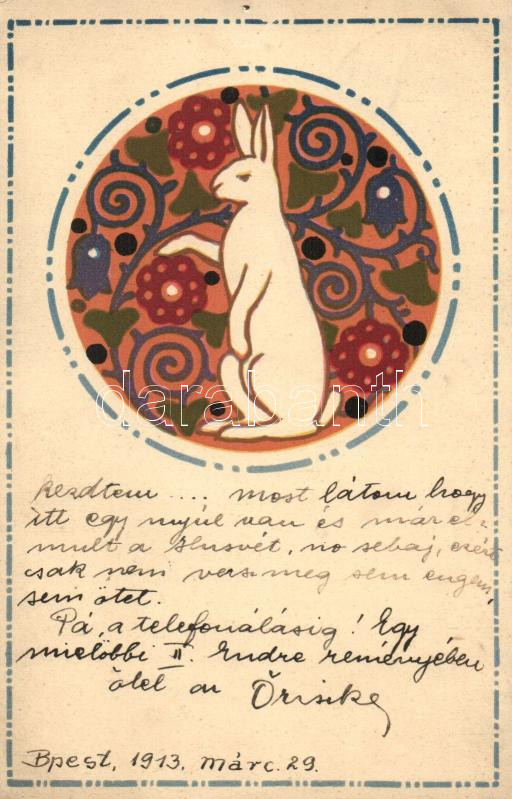 darabanth
kezdtem .... most látom hogy
itt egy nyúl van és már el=
mult a Husvét, no sebaj, ezért
csak nem versz meg sem engem,
sem őtet.
Pá, a telefonálásig! Egy
mielőbbi II. Endre reményében
ölel
Bpest, 1913. márc. 29.